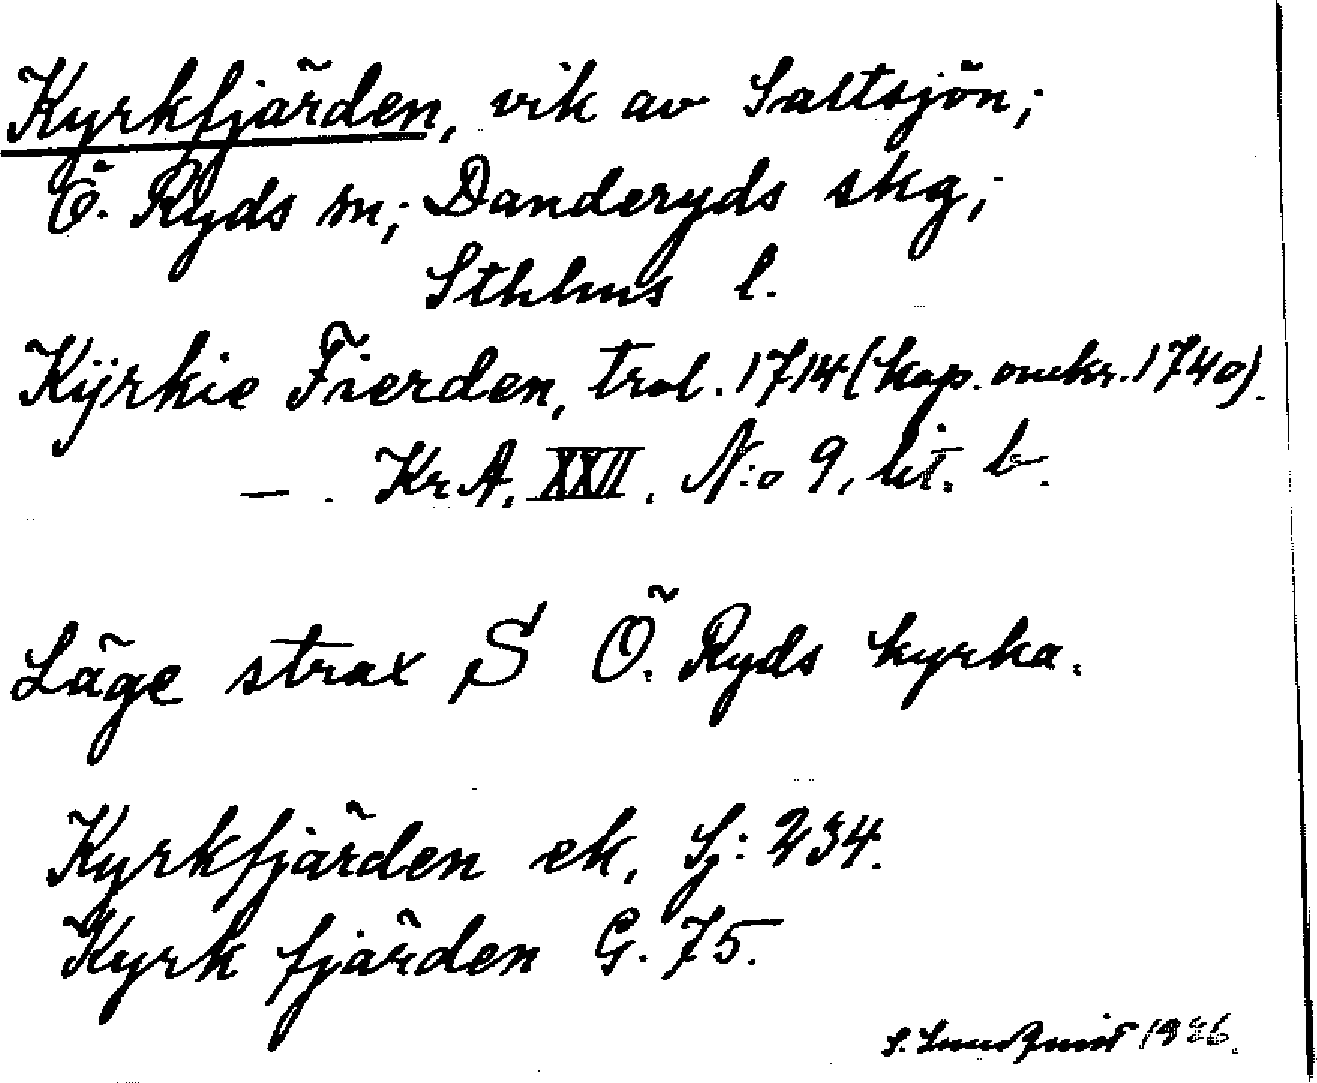 Kyrkfjärden, vik av Saltsjön;
Ö. Ryds sn; Danderyds skg;
Sthlms l.
Kÿrkie Fierden, trol. 1714 (kop. omkr. 1740).
— . Kr A. XXII. N:o 9, lit. b.
Läge strax S Ö. Ryds kyrka.
Kyrkfjärden ek. Sj: 234.
Kyrk fjärden G. 75.
S. Lundquist